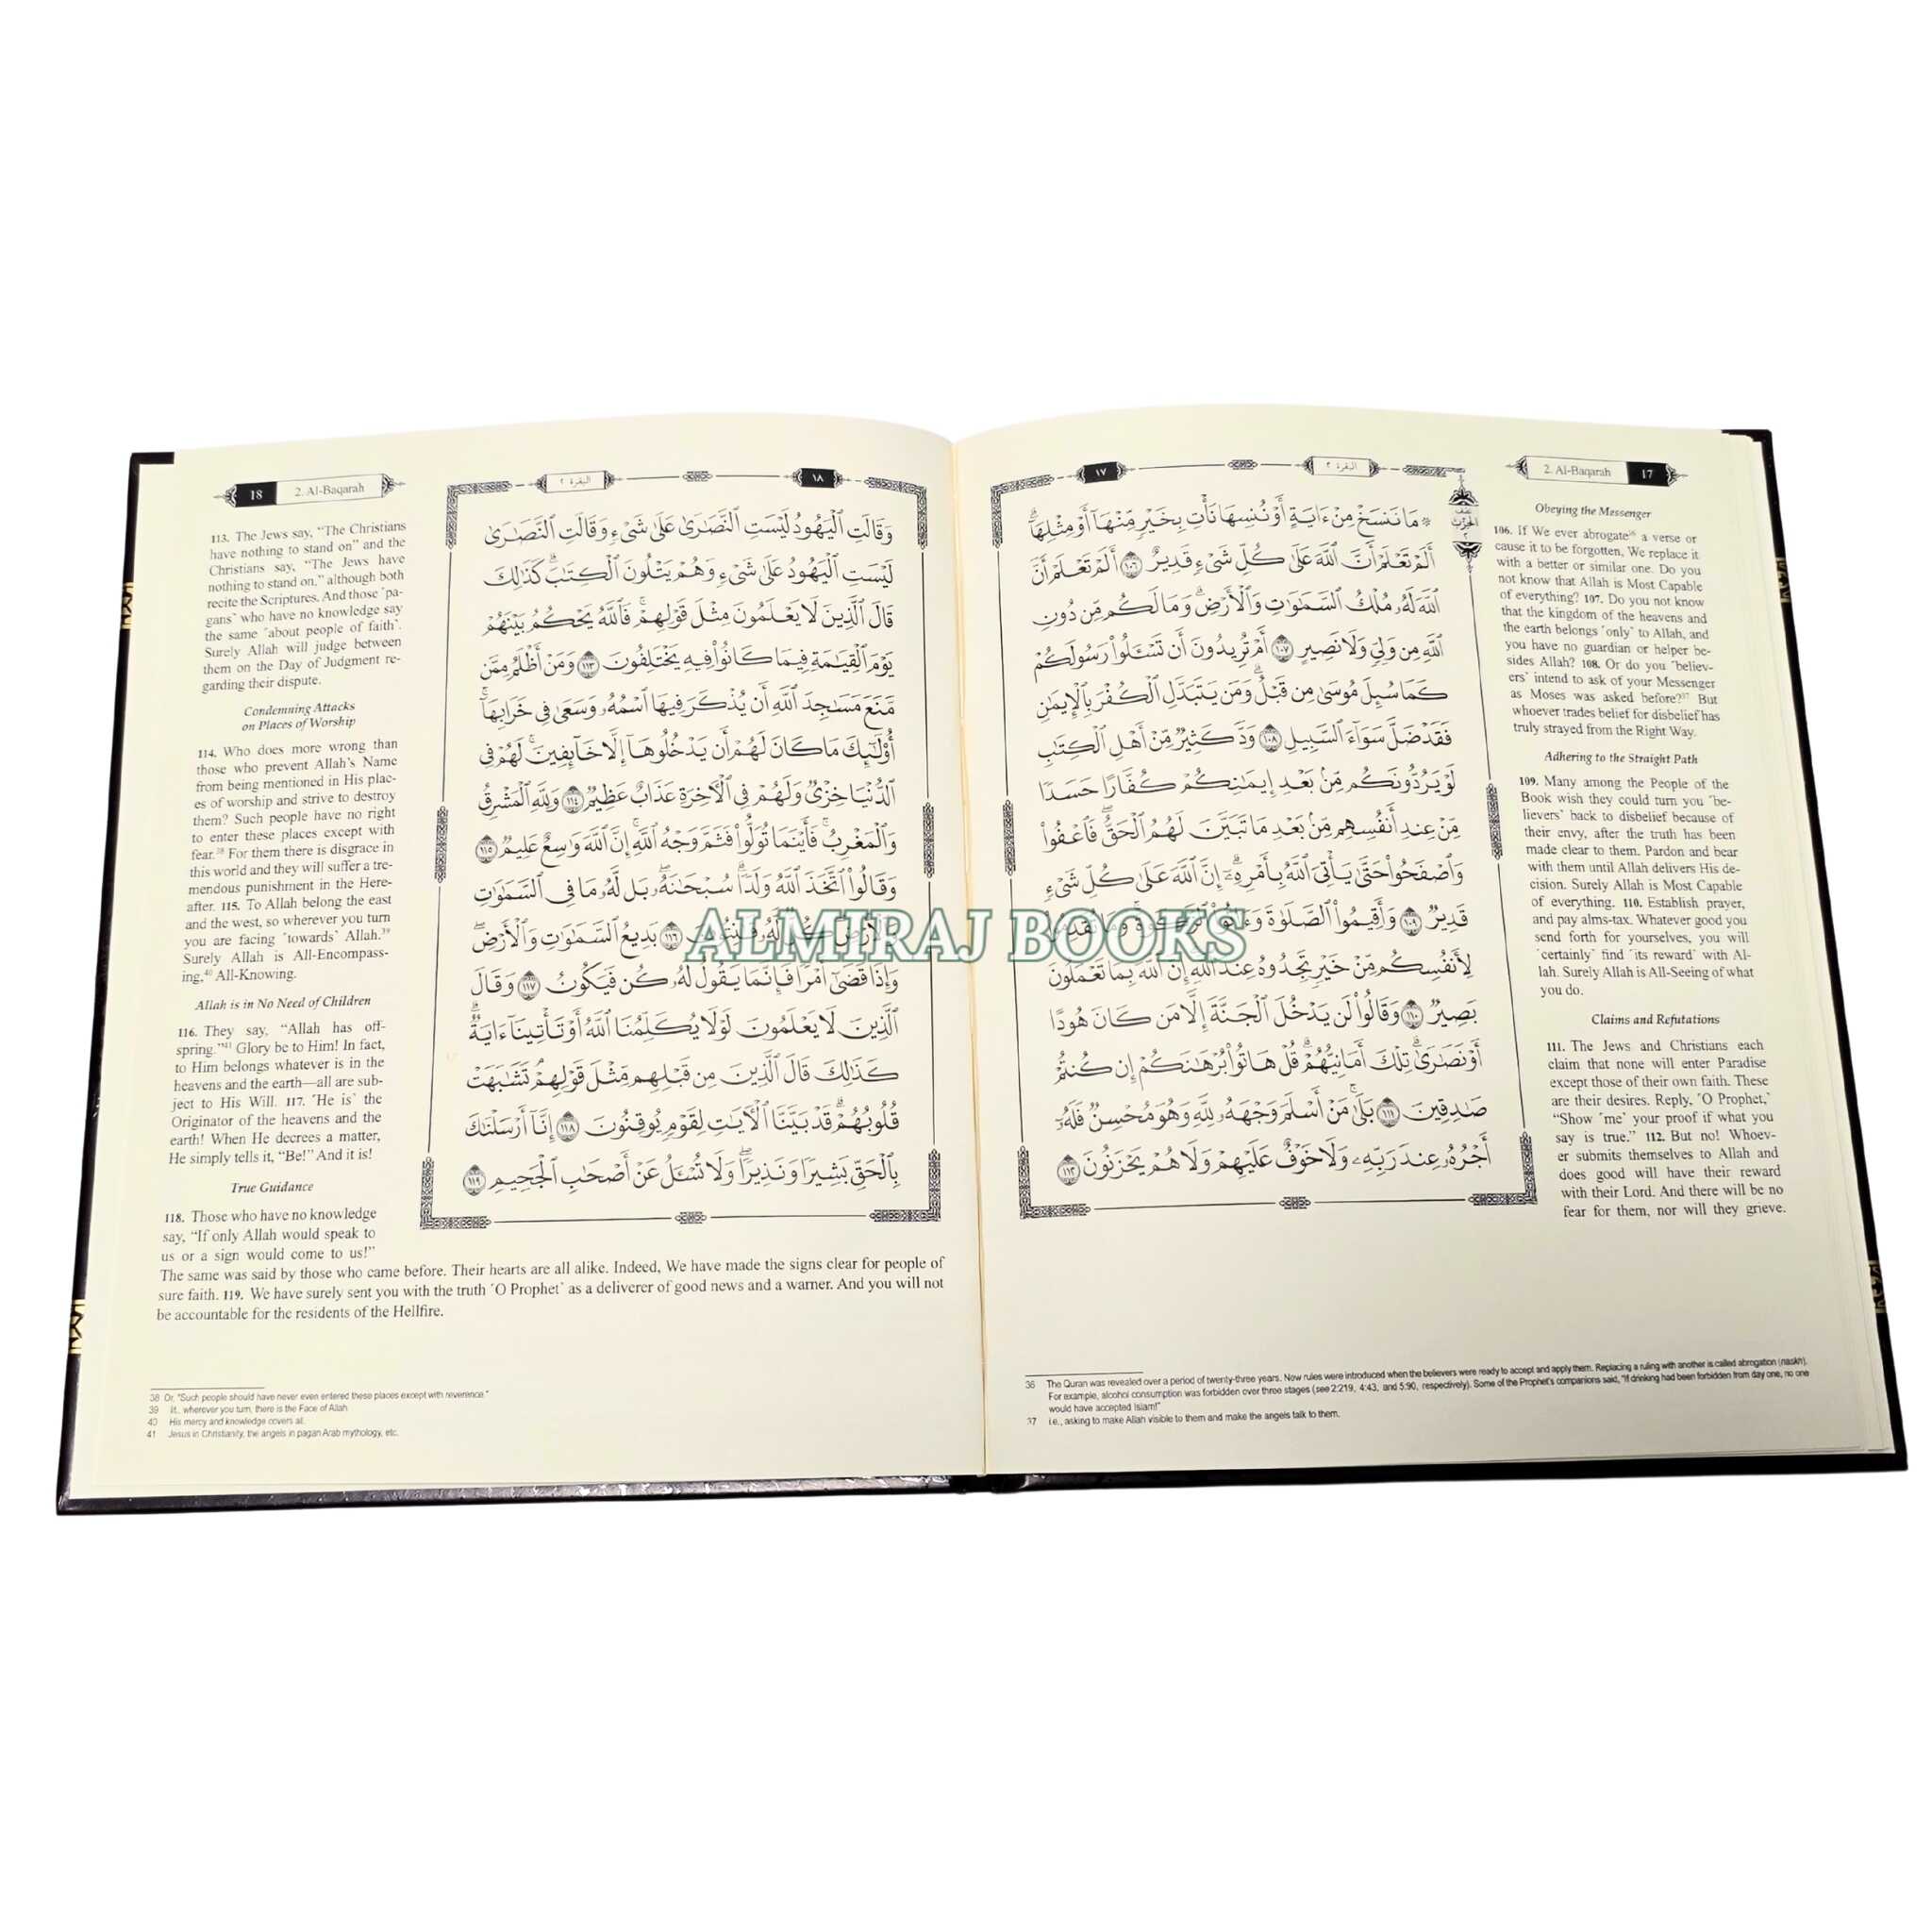 ١٧
البقرة ٢
2. Al-Baqarah
17
۞ مَا نَنسَخْ مِنْ ءَايَةٍ أَوْ نُنسِهَا نَأْتِ بِخَيْرٍ مِّنْهَآ أَوْ مِثْلِهَآ ۗ
أَلَمْ تَعْلَمْ أَنَّ ٱللَّهَ عَلَىٰ كُلِّ شَىْءٍ قَدِيرٌ ١٠٦ أَلَمْ تَعْلَمْ أَنَّ
ٱللَّهَ لَهُۥ مُلْكُ ٱلسَّمَٰوَٰتِ وَٱلْأَرْضِ ۗ وَمَا لَكُم مِّن دُونِ
ٱللَّهِ مِن وَلِىٍّ وَلَا نَصِيرٍ ١٠٧ أَمْ تُرِيدُونَ أَن تَسْـَٔلُوا۟ رَسُولَكُمْ
كَمَا سُئِلَ مُوسَىٰ مِن قَبْلُ ۗ وَمَن يَتَبَدَّلِ ٱلْكُفْرَ بِٱلْإِيمَٰنِ
فَقَدْ ضَلَّ سَوَآءَ ٱلسَّبِيلِ ١٠٨ وَدَّ كَثِيرٌ مِّنْ أَهْلِ ٱلْكِتَٰبِ
لَوْ يَرُدُّونَكُم مِّنۢ بَعْدِ إِيمَٰنِكُمْ كُفَّارًا حَسَدًا
مِّنْ عِندِ أَنفُسِهِم مِّنۢ بَعْدِ مَا تَبَيَّنَ لَهُمُ ٱلْحَقُّ ۖ فَٱعْفُوا۟
وَٱصْفَحُوا۟ حَتَّىٰ يَأْتِىَ ٱللَّهُ بِأَمْرِهِۦٓ ۗ إِنَّ ٱللَّهَ عَلَىٰ كُلِّ شَىْءٍ
قَدِيرٌ ١٠٩ وَأَقِيمُوا۟ ٱلصَّلَوٰةَ وَءَاتُوا۟ ٱلزَّكَوٰةَ ۚ وَمَا تُقَدِّمُوا۟
لِأَنفُسِكُم مِّنْ خَيْرٍ تَجِدُوهُ عِندَ ٱللَّهِ ۗ إِنَّ ٱللَّهَ بِمَا تَعْمَلُونَ
بَصِيرٌ ١١٠ وَقَالُوا۟ لَن يَدْخُلَ ٱلْجَنَّةَ إِلَّا مَن كَانَ هُودًا
أَوْ نَصَٰرَىٰ ۗ تِلْكَ أَمَانِيُّهُمْ ۗ قُلْ هَاتُوا۟ بُرْهَٰنَكُمْ إِن كُنتُمْ
صَٰدِقِينَ ١١١ بَلَىٰ مَنْ أَسْلَمَ وَجْهَهُۥ لِلَّهِ وَهُوَ مُحْسِنٌ فَلَهُۥٓ
أَجْرُهُۥ عِندَ رَبِّهِۦ وَلَا خَوْفٌ عَلَيْهِمْ وَلَا هُمْ يَحْزَنُونَ ١١٢
نصف
الحزب
٢
Obeying the Messenger
106. If We ever abrogate³⁶ a verse or
cause it to be forgotten, We replace it
with a better or similar one. Do you
not know that Allah is Most Capable
of everything? 107. Do you not know
that the kingdom of the heavens and
the earth belongs ˹only˺ to Allah, and
you have no guardian or helper be-
sides Allah? 108. Or do you ˹believ-
ers˺ intend to ask of your Messenger
as Moses was asked before?³⁷ But
whoever trades belief for disbelief has
truly strayed from the Right Way.
Adhering to the Straight Path
109. Many among the People of the
Book wish they could turn you ˹be-
lievers˺ back to disbelief because of
their envy, after the truth has been
made clear to them. Pardon and bear
with them until Allah delivers His de-
cision. Surely Allah is Most Capable
of everything. 110. Establish prayer,
and pay alms-tax. Whatever good you
send forth for yourselves, you will
˹certainly˺ find ˹its reward˺ with Al-
lah. Surely Allah is All-Seeing of what
you do.
Claims and Refutations
111. The Jews and Christians each
claim that none will enter Paradise
except those of their own faith. These
are their desires. Reply, ˹O Prophet,˺
“Show ˹me˺ your proof if what you
say is true.” 112. But no! Whoev-
er submits themselves to Allah and
does good will have their reward
with their Lord. And there will be no
fear for them, nor will they grieve.
36 The Quran was revealed over a period of twenty-three years. New rules were introduced when the believers were ready to accept and apply them. Replacing a ruling with another is called abrogation (naskh).
For example, alcohol consumption was forbidden over three stages (see 2:219, 4:43, and 5:90, respectively). Some of the Prophet's companions said, "If drinking had been forbidden from day one, no one
would have accepted Islam!"
37 i.e., asking to make Allah visible to them and make the angels talk to them.
18
2. Al-Baqarah
البقرة ٢
١٨
وَقَالَتِ ٱلْيَهُودُ لَيْسَتِ ٱلنَّصَٰرَىٰ عَلَىٰ شَىْءٍ وَقَالَتِ ٱلنَّصَٰرَىٰ
لَيْسَتِ ٱلْيَهُودُ عَلَىٰ شَىْءٍ وَهُمْ يَتْلُونَ ٱلْكِتَٰبَ ۗ كَذَٰلِكَ
قَالَ ٱلَّذِينَ لَا يَعْلَمُونَ مِثْلَ قَوْلِهِمْ ۚ فَٱللَّهُ يَحْكُمُ بَيْنَهُمْ
يَوْمَ ٱلْقِيَٰمَةِ فِيمَا كَانُوا۟ فِيهِ يَخْتَلِفُونَ ١١٣ وَمَنْ أَظْلَمُ مِمَّن
مَّنَعَ مَسَٰجِدَ ٱللَّهِ أَن يُذْكَرَ فِيهَا ٱسْمُهُۥ وَسَعَىٰ فِى خَرَابِهَآ ۚ
أُو۟لَٰٓئِكَ مَا كَانَ لَهُمْ أَن يَدْخُلُوهَآ إِلَّا خَآئِفِينَ ۚ لَهُمْ فِى
ٱلدُّنْيَا خِزْىٌ وَلَهُمْ فِى ٱلْـَٔاخِرَةِ عَذَابٌ عَظِيمٌ ١١٤ وَلِلَّهِ ٱلْمَشْرِقُ
وَٱلْمَغْرِبُ ۚ فَأَيْنَمَا تُوَلُّوا۟ فَثَمَّ وَجْهُ ٱللَّهِ ۚ إِنَّ ٱللَّهَ وَٰسِعٌ عَلِيمٌ ١١٥
وَقَالُوا۟ ٱتَّخَذَ ٱللَّهُ وَلَدًا ۗ سُبْحَٰنَهُۥ ۖ بَل لَّهُۥ مَا فِى ٱلسَّمَٰوَٰتِ
وَٱلْأَرْضِ ۖ كُلٌّ لَّهُۥ قَٰنِتُونَ ١١٦ بَدِيعُ ٱلسَّمَٰوَٰتِ وَٱلْأَرْضِ ۖ
وَإِذَا قَضَىٰٓ أَمْرًا فَإِنَّمَا يَقُولُ لَهُۥ كُن فَيَكُونُ ١١٧ وَقَالَ
ٱلَّذِينَ لَا يَعْلَمُونَ لَوْلَا يُكَلِّمُنَا ٱللَّهُ أَوْ تَأْتِينَآ ءَايَةٌ ۗ
كَذَٰلِكَ قَالَ ٱلَّذِينَ مِن قَبْلِهِم مِّثْلَ قَوْلِهِمْ ۘ تَشَٰبَهَتْ
قُلُوبُهُمْ ۗ قَدْ بَيَّنَّا ٱلْـَٔايَٰتِ لِقَوْمٍ يُوقِنُونَ ١١٨ إِنَّآ أَرْسَلْنَٰكَ
بِٱلْحَقِّ بَشِيرًا وَنَذِيرًا ۖ وَلَا تُسْـَٔلُ عَنْ أَصْحَٰبِ ٱلْجَحِيمِ ١١٩
113. The Jews say, “The Christians
have nothing to stand on” and the
Christians say, “The Jews have
nothing to stand on,” although both
recite the Scriptures. And those ˹pa-
gans˺ who have no knowledge say
the same ˹about people of faith˺.
Surely Allah will judge between
them on the Day of Judgment re-
garding their dispute.
Condemning Attacks
on Places of Worship
114. Who does more wrong than
those who prevent Allah’s Name
from being mentioned in His plac-
es of worship and strive to destroy
them? Such people have no right
to enter these places except with
fear.³⁸ For them there is disgrace in
this world and they will suffer a tre-
mendous punishment in the Here-
after. 115. To Allah belong the east
and the west, so wherever you turn
you are facing ˹towards˺ Allah.³⁹
Surely Allah is All-Encompass-
ing,⁴⁰ All-Knowing.
Allah is in No Need of Children
116. They say, “Allah has off-
spring.”⁴¹ Glory be to Him! In fact,
to Him belongs whatever is in the
heavens and the earth—all are sub-
ject to His Will. 117. ˹He is˺ the
Originator of the heavens and the
earth! When He decrees a matter,
He simply tells it, “Be!” And it is!
True Guidance
118. Those who have no knowledge
say, “If only Allah would speak to
us or a sign would come to us!”
The same was said by those who came before. Their hearts are all alike. Indeed, We have made the signs clear for people of
sure faith. 119. We have surely sent you with the truth ˹O Prophet˺ as a deliverer of good news and a warner. And you will not
be accountable for the residents of the Hellfire.
38 Or, "Such people should have never even entered these places except with reverence."
39 lit., wherever you turn, there is the Face of Allah.
40 His mercy and knowledge covers all.
41 Jesus in Christianity, the angels in pagan Arab mythology, etc.
ALMIRAJ BOOKS